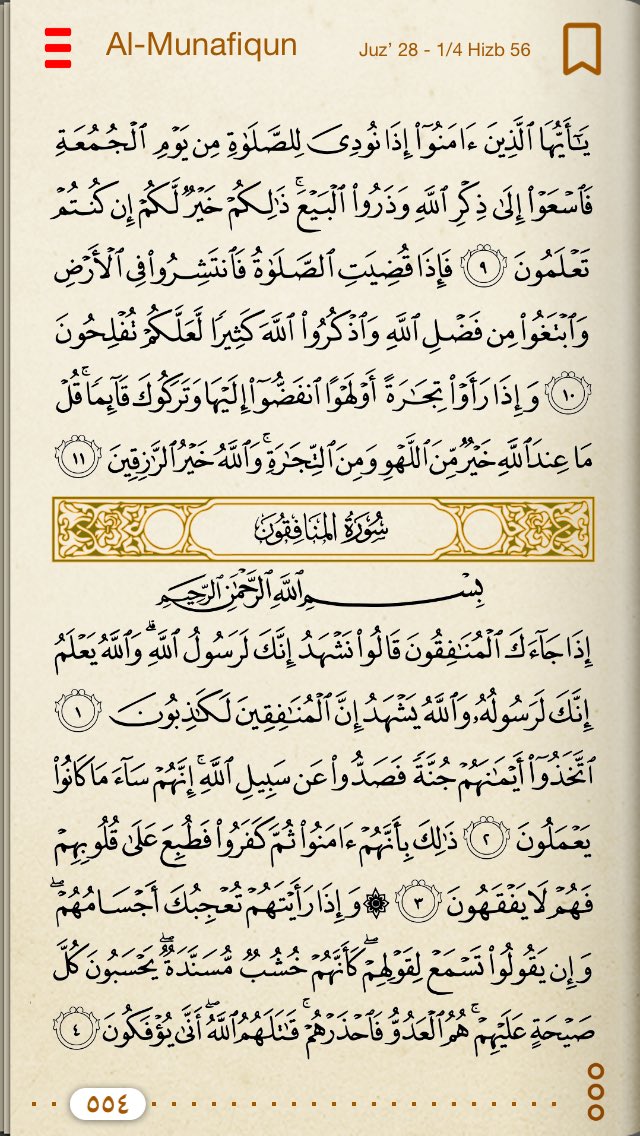 Al-Munafiqun
Juz’ 28 - 1/4 Hizb 56
يَٰٓأَيُّهَا ٱلَّذِينَ ءَامَنُوٓا۟ إِذَا نُودِىَ لِلصَّلَوٰةِ مِن يَوْمِ ٱلْجُمُعَةِ
فَٱسْعَوْا۟ إِلَىٰ ذِكْرِ ٱللَّهِ وَذَرُوا۟ ٱلْبَيْعَ ۚ ذَٰلِكُمْ خَيْرٌ لَّكُمْ إِن كُنتُمْ
تَعْلَمُونَ ٩ فَإِذَا قُضِيَتِ ٱلصَّلَوٰةُ فَٱنتَشِرُوا۟ فِى ٱلْأَرْضِ
وَٱبْتَغُوا۟ مِن فَضْلِ ٱللَّهِ وَٱذْكُرُوا۟ ٱللَّهَ كَثِيرًا لَّعَلَّكُمْ تُفْلِحُونَ
١٠ وَإِذَا رَأَوْا۟ تِجَٰرَةً أَوْ لَهْوًا ٱنفَضُّوٓا۟ إِلَيْهَا وَتَرَكُوكَ قَآئِمًا ۚ قُلْ
مَا عِندَ ٱللَّهِ خَيْرٌ مِّنَ ٱللَّهْوِ وَمِنَ ٱلتِّجَٰرَةِ ۚ وَٱللَّهُ خَيْرُ ٱلرَّٰزِقِينَ ١١
سُورَةُ المُنَافِقُونَ
بِسْمِ ٱللَّهِ ٱلرَّحْمَٰنِ ٱلرَّحِيمِ
إِذَا جَآءَكَ ٱلْمُنَٰفِقُونَ قَالُوا۟ نَشْهَدُ إِنَّكَ لَرَسُولُ ٱللَّهِ ۗ وَٱللَّهُ يَعْلَمُ
إِنَّكَ لَرَسُولُهُۥ وَٱللَّهُ يَشْهَدُ إِنَّ ٱلْمُنَٰفِقِينَ لَكَٰذِبُونَ ١
ٱتَّخَذُوٓا۟ أَيْمَٰنَهُمْ جُنَّةً فَصَدُّوا۟ عَن سَبِيلِ ٱللَّهِ ۚ إِنَّهُمْ سَآءَ مَا كَانُوا۟
يَعْمَلُونَ ٢ ذَٰلِكَ بِأَنَّهُمْ ءَامَنُوا۟ ثُمَّ كَفَرُوا۟ فَطُبِعَ عَلَىٰ قُلُوبِهِمْ
فَهُمْ لَا يَفْقَهُونَ ٣ ۞ وَإِذَا رَأَيْتَهُمْ تُعْجِبُكَ أَجْسَامُهُمْ ۖ
وَإِن يَقُولُوا۟ تَسْمَعْ لِقَوْلِهِمْ ۖ كَأَنَّهُمْ خُشُبٌ مُّسَنَّدَةٌ ۖ يَحْسَبُونَ كُلَّ
صَيْحَةٍ عَلَيْهِمْ ۚ هُمُ ٱلْعَدُوُّ فَٱحْذَرْهُمْ ۚ قَٰتَلَهُمُ ٱللَّهُ ۖ أَنَّىٰ يُؤْفَكُونَ ٤
٥٥٤